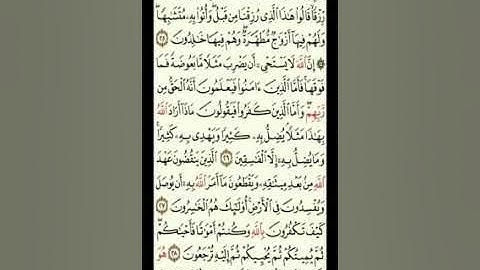 رِّزْقًا قَالُوا۟ هَٰذَا ٱلَّذِى رُزِقْنَا مِن قَبْلُ وَأُتُوا۟ بِهِۦ مُتَشَٰبِهًا
وَلَهُمْ فِيهَآ أَزْوَٰجٌ مُّطَهَّرَةٌ وَهُمْ فِيهَا خَٰلِدُونَ ٢٥
إِنَّ ٱللَّهَ لَا يَسْتَحْىِۦٓ أَن يَضْرِبَ مَثَلًا مَّا بَعُوضَةً فَمَا
فَوْقَهَا فَأَمَّا ٱلَّذِينَ ءَامَنُوا۟ فَيَعْلَمُونَ أَنَّهُ ٱلْحَقُّ مِن
رَّبِّهِمْ وَأَمَّا ٱلَّذِينَ كَفَرُوا۟ فَيَقُولُونَ مَاذَآ أَرَادَ ٱللَّهُ
بِهَٰذَا مَثَلًا يُضِلُّ بِهِۦ كَثِيرًا وَيَهْدِى بِهِۦ كَثِيرًا
وَمَا يُضِلُّ بِهِۦٓ إِلَّا ٱلْفَٰسِقِينَ ٢٦ ٱلَّذِينَ يَنقُضُونَ عَهْدَ
ٱللَّهِ مِنۢ بَعْدِ مِيثَٰقِهِۦ وَيَقْطَعُونَ مَآ أَمَرَ ٱللَّهُ بِهِۦٓ أَن يُوصَلَ
وَيُفْسِدُونَ فِى ٱلْأَرْضِ أُو۟لَٰٓئِكَ هُمُ ٱلْخَٰسِرُونَ ٢٧
كَيْفَ تَكْفُرُونَ بِٱللَّهِ وَكُنتُمْ أَمْوَٰتًا فَأَحْيَٰكُمْ
ثُمَّ يُمِيتُكُمْ ثُمَّ يُحْيِيكُمْ ثُمَّ إِلَيْهِ تُرْجَعُونَ ٢٨ هُوَ